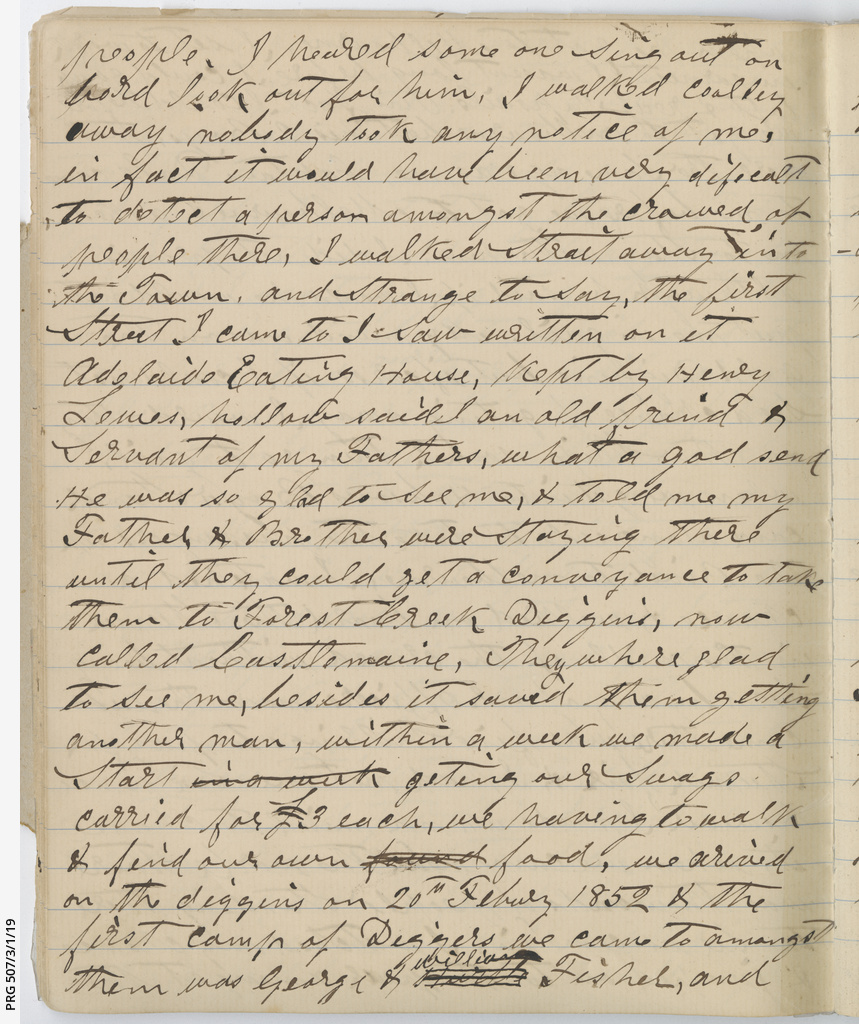 people. I heared some one sing out on
bord look out for him, I walked coolley
away nobody took any notice of me,
in fact it would have been very difecalt
to detect a person amongst the crawed of
people there, I walked Strait away into
the Town, and Strange to Say, the first
Street I came to I Saw written on it
Adelaide Eating House, Kept by Henry
Lewes, hollow said I an old frind &
Servant of my Fathers, what a god send
He was so glad to See me, & told me my
Father & Brother were Staying there
until they could get a conveyance to take
them to Forest Creek Diggins, now
called Castlemaine, They where glad
to see me, besides it saved them getting
another man, within a week we made a
Start in a week geting our Swags
carried for £3 each, we having to walk
& find our own found food, we arived
on the diggins on 20th Febury 1852 & the
first camp of Diggers we came to amongst
william
them was George & Fisher, and
PRG 507/3/1/19